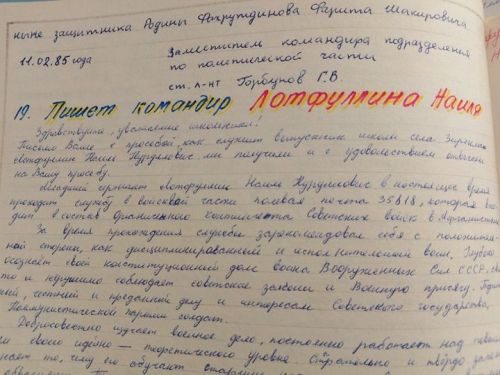 ныне защитника Родины Фахрутдинова Фарита Шакировича
11.02.85 года
Заместитель командира подразделения
по политической части
ст. л-нт Горбунов Г.В.
19. Пишет командир Лотфуллина Наиля
Здравствуйте, уважаемые школьники!
Письмо Ваше с просьбой, как служит выпускник школы села
Лотфуллин Наиль мы получили и с удовольствием отвечаем
на Вашу просьбу.
Младший сержант Лотфуллин Наиль в настоящее время
проходит службу в войсковой части полевая почта 35818, которая вхо-
дит в состав ограниченного контингента Советских войск в Афганистане
За время прохождения службы зарекомендовал себя с положитель-
ной стороны, как дисциплинированный и исполнительный воин. Глубоко
осознаёт свой конституционный долг воина Вооруженных Сил СССР.
то и нерушимо соблюдает советские законы и Военную присягу.
честный и преданный делу и интересам Советского государства,
Коммунистической партии солдат.
Добросовестно изучает военное дело, постоянно работает над повыше-
своего идейно-теоретического уровня. Старательно и твёрдо
то, чему его обучают